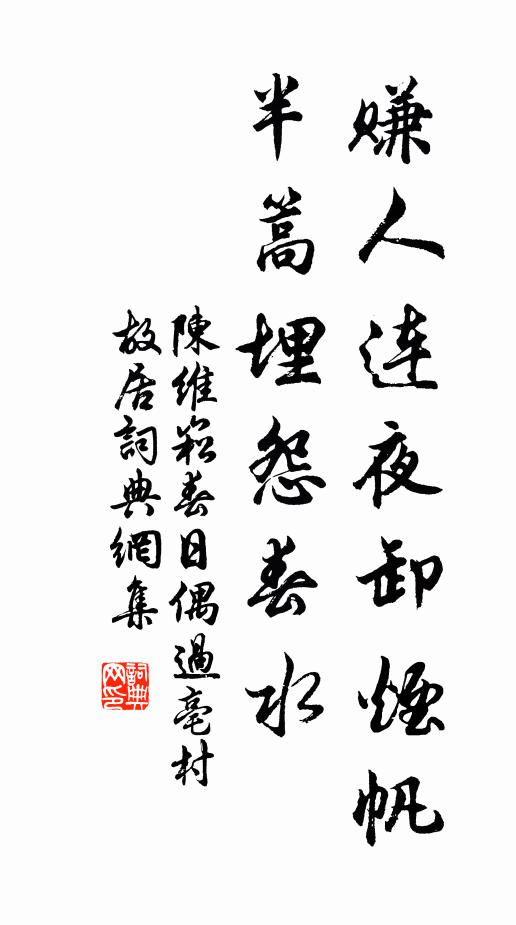 賺人連夜卸煙帆
半篙埋怨春水
陳維崧春日偶過亳村
故居詞典網集
詞典网印